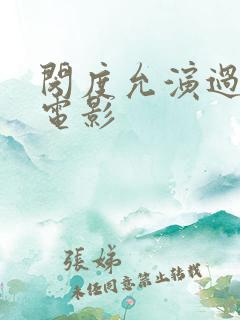 閔度允演過
電影
張娣
未经同意禁止转载